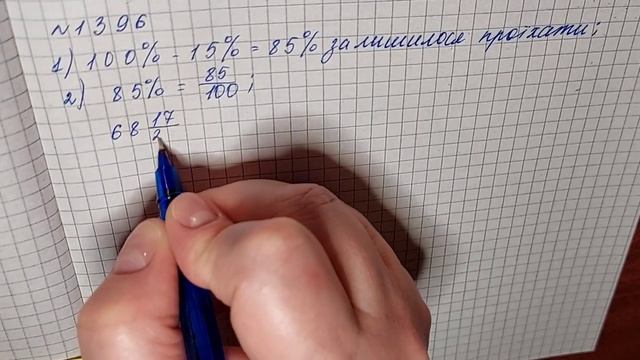 №1396
1) 100% - 15% = 85% залишилося проїхати;
2) 85% = 85/100;
68 17/2